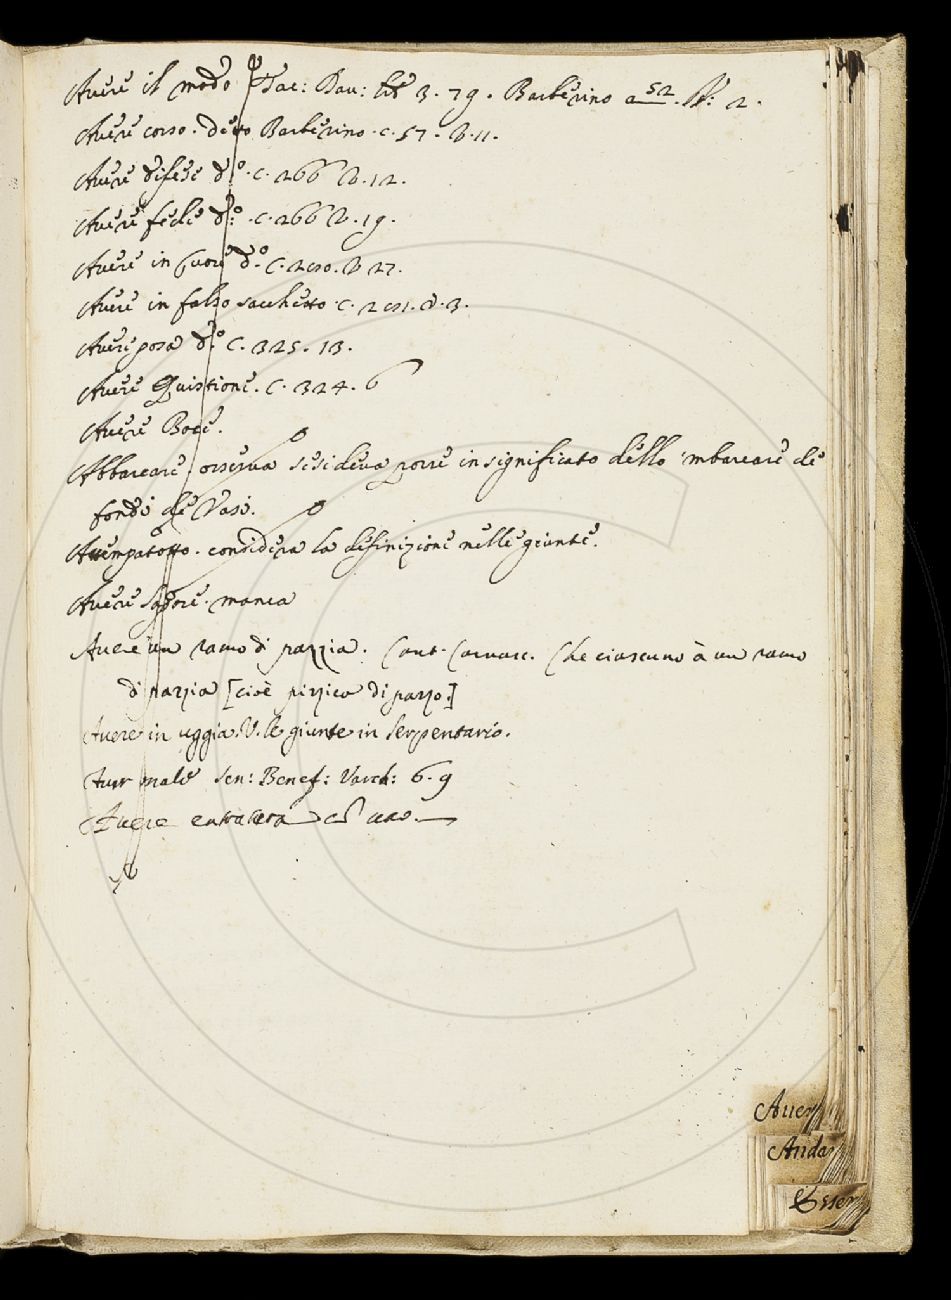 Avere il modo Tac: Dav: lib 3. 79. Barberino a 52 V: 2.
Avere corso. detto Barberino. c. 57. V. 11.
Avere difese d.º c. 266 V. 12.
Avere fede d.º c. 266 V. 19.
Avere in cuore d.º c. 260. V 27.
Avere in falso sacchetto c. 261. V. 3.
Avere posa d.º c. 325. 13.
Avere Quistione. c. 324. 6
Avere Boce.
Abbarcare osserva se si deva porre in significato dello imbarcare de
fondi de Vasi.
considera la definizione nelle giunte.
Avere sapore. manca
Avere un ramo di pazzia. Cant. Carnasc. Che ciascuno à un ramo
di pazzia [cioè pizzico di pazzo.]
Avere in uggia. V. le giunte in serpentario.
Aver male Sen: Benef: Varch: 6. 9
Avere entratura uno.
Aver
Andar
Esser